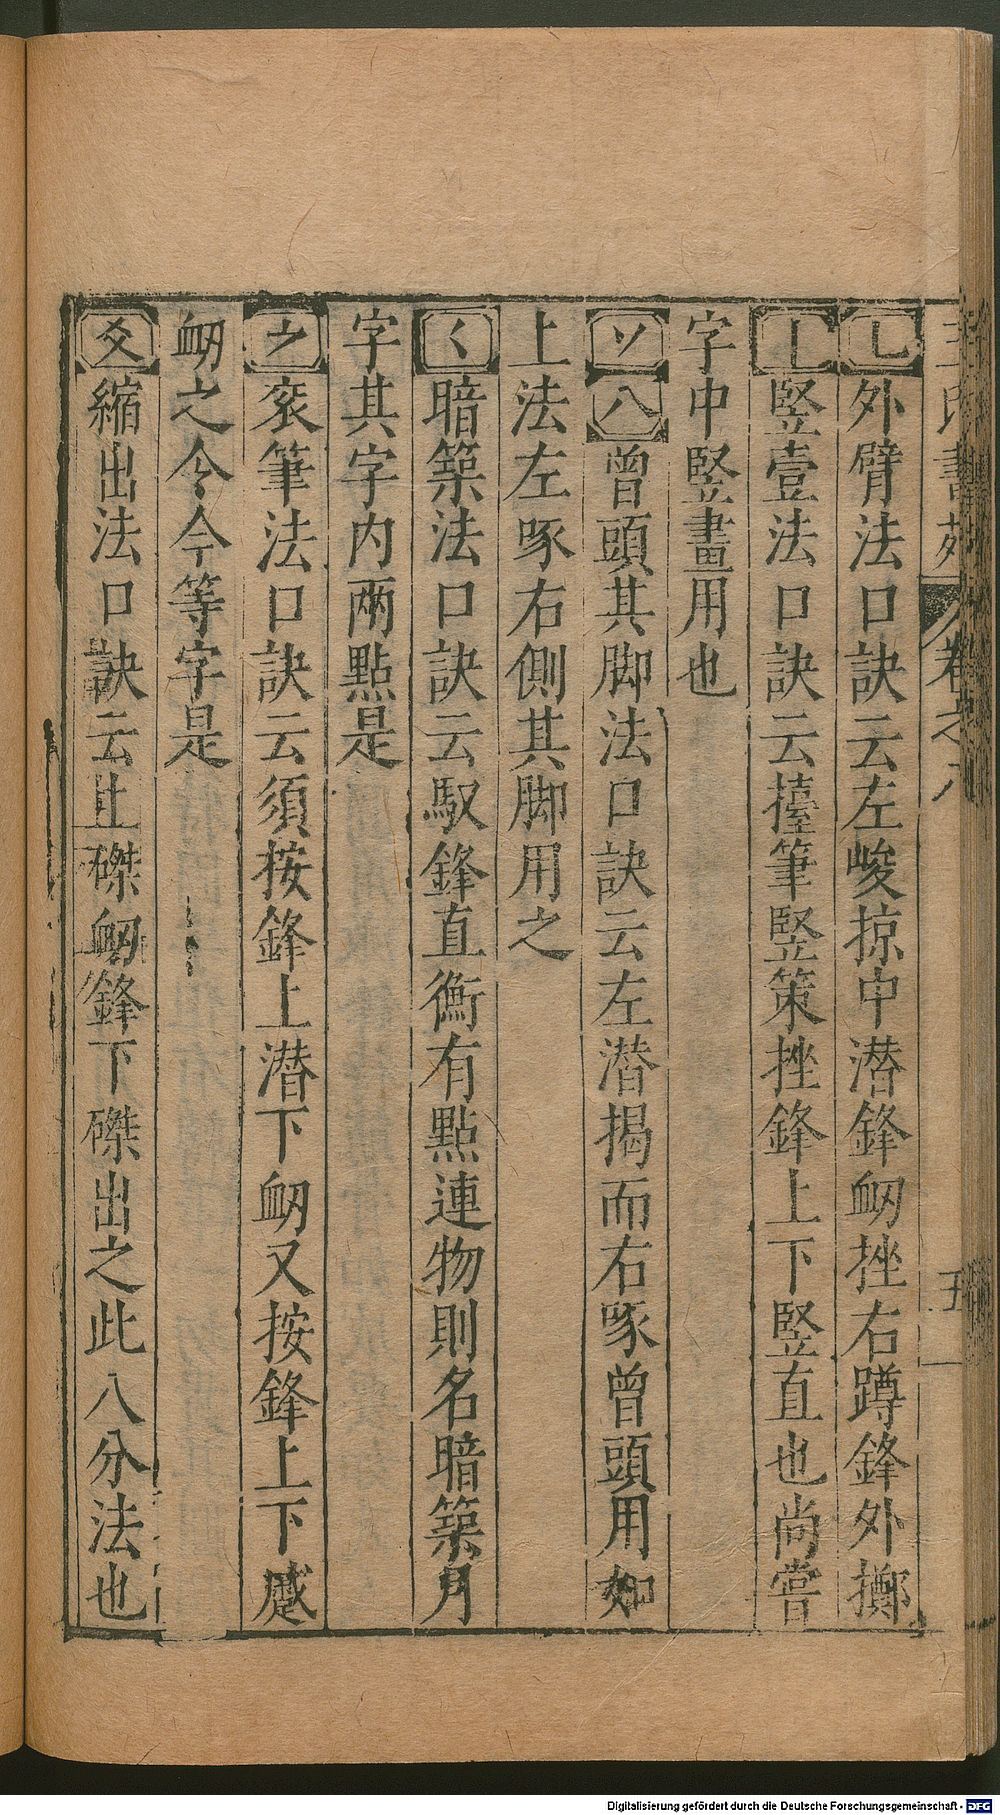 王氏書苑 卷之八 五
乚外臂法口訣云左峻掠中潜鋒衂挫右蹲鋒外擲
丨竪壹法口訣云擡筆竪策挫鋒上下竪直也尚嘗
字中竪畫用也
丷八曾頭其脚法口訣云左潜揭而右啄曾頭用如
上法左啄右側其脚用之
暗築法口訣云馭鋒直衝有點連物則名暗築月
字其字内兩點是
衮筆法口訣云須按鋒上潜下衂又按鋒上下蹙
衂之令今等字是
爻縮出法口訣云止磔衂鋒下磔出之此八分法也
Digitalisierung gefördert durch die Deutsche Forschungsgemeinschaft - DFG